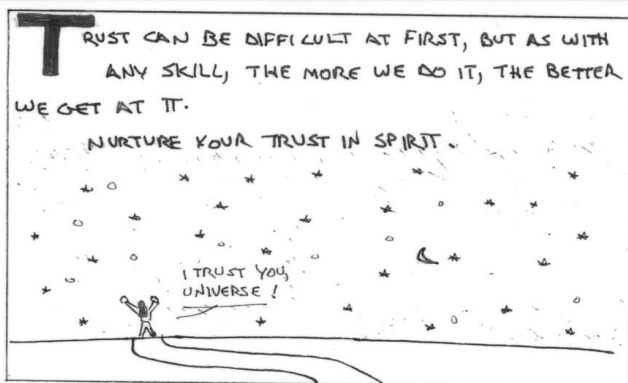 TRUST CAN BE DIFFICULT AT FIRST, BUT AS WITH
ANY SKILL, THE MORE WE DO IT, THE BETTER
WE GET AT IT.
NURTURE YOUR TRUST IN SPIRIT.
I TRUST YOU,
UNIVERSE!